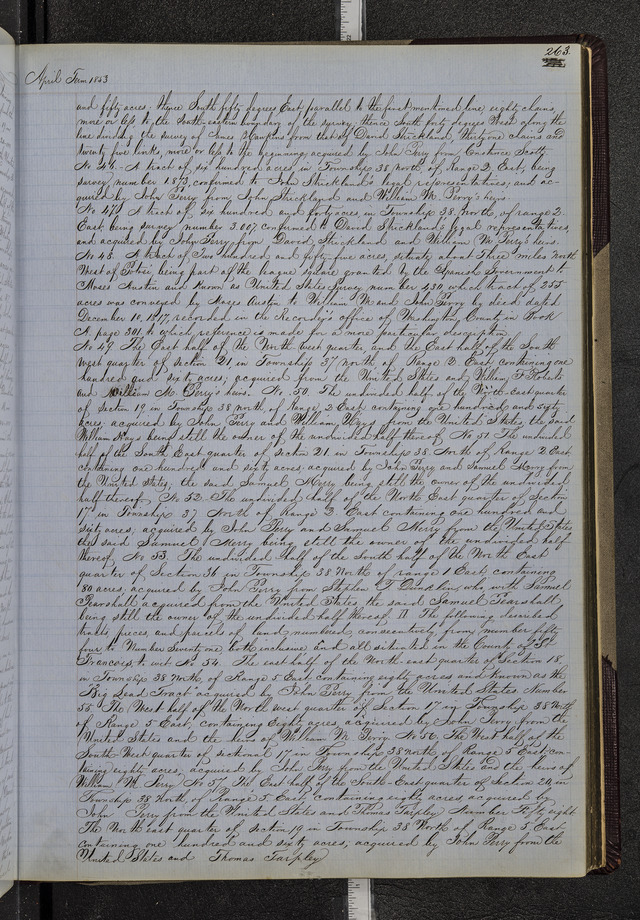 263
April Term 1853
and fifty acres; thence South fifty degrees East parallel to the first mentioned line, eighty chains,
more or less to the South-eastern boundary of the survey, thence South forty degrees West along the
line dividing the survey of Hawkins from that of David Strickland, thirty one chains and
twenty five links, more or less to the beginning acquired by John Perry from Constance Scott.
No 46. A tract of six hundred acres in Township 38 North, of Range 2 East, being
survey number 1873, confirmed to John Strickland's legal representatives, and ac-
quired by John Perry from John Strickland and William M. Perry's heirs
No 47. A tract of six hundred and forty acres, in Township 38 North, of range 2.
East being survey number 3.007 confirmed to David Strickland's legal representatives,
and acquired by John Perry from David Strickland and William M Perry's heirs.
No 48. A tract of Two hundred and fifty-five acres, situate about Three miles North
West of Potosi, being part of the league square granted by the Spanish Government to
Moses Austin and known as United States Survey number 430, which tract of 255
acres was conveyed by Moses Austin to William M and John Perry by deed dated
December 10, 1817, recorded in the Recorder's office of Washington County in Book
A. page 301, to which reference is made for a more particular description
No 49. The East half of the North west quarter and the East half of the South
west quarter of section 21, in Township 37 North of Range 2 East, containing one
hundred and sixty acres, acquired from the United States and William F Roberts
and William M. Perry's heirs. No. 50. The undivided half of the East quarter
of Section 19 in Township 38 north, of Range 2 East containing one hundred and sixty
acres. acquired by John Perry and William Hays from the United States, the said
William Hays being still the owner of the undivided half thereof. No 51. The undivided
half of the South East quarter of section 21 in Township 38. North of Range 2 East
containing one hundred and sixty acres. acquired by John Perry and Samuel Merry from
the United States, the said Samuel Merry being still the owner of the undivided
half thereof. No 52. The undivided half of the North East quarter of Section
17 in Township 37 North of Range 3 East containing one hundred and
sixty acres, acquired by John Perry and Samuel Merry from the United States
the said Samuel Merry being still the owner of the undivided half
thereof. No 53. The undivided half of the South half of the North East
quarter of Section 36 in Township 38 North of range 1 East, containing
80 acres. acquired by John Perry from Stephen F Dunklin who, with Samuel
Pearshall acquired from the United States the said Samuel Pearshall
being still the owner of the undivided half thereof. II. The following described
tracts, pieces, and parcels of land numbered consecutively from number fifty
four to Number Seventy one, both inclusive and all situated in the County of St.
Francois to wit No 54. The east half of the North-east quarter of Section 18.
in Township 38 North, of Range 5 East. containing eighty acres and known as the
"Big Lead Tract" acquired by John Perry from the United States Number
55 The West half of the North west quarter of Section 17 in Township 38 North
of Range 5 East, containing Eighty acres, acquired by John Perry from the
United States and the heirs of William M. Perry No 56. The West half of the
South-West quarter of section 17 in Township 38 north of Range 5 East con-
taining eighty acres, acquired by John Perry from the United States and the heirs of
William M Perry No 57. The East half of the South-East quarter of Section 24 in
Township 38 North, of Range 5 East, containing eighty acres acquired by
John Perry from the United States and Thomas Tarpley Number Fifty eight
The North east quarter of Section 19 in Township 38 North of Range 5 East
containing one hundred and sixty acres, acquired by John Perry from the
United States and Thomas Tarpley